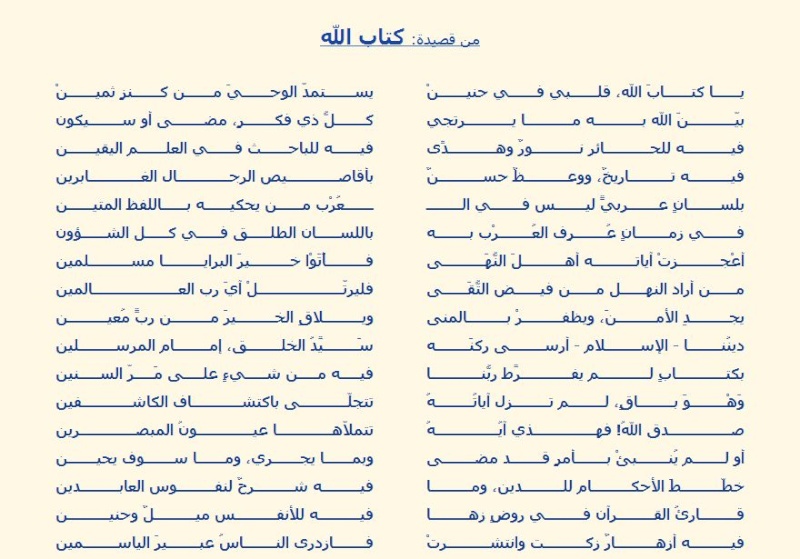 من قصيدة: كتاب الله
يا كتابَ الله، قلبي في حنينْ يستمدَ الوحيَ من كنزٍ ثمينْ
بيّنَ الله به ما يرتجي كلُّ ذي فكرٍ، مضى أو سيكون
فيه للحائر نورٌ وهدًى فيه للباحث في العلم اليقين
فيه تاريخٌ، ووعظٌ حسنٌ بأقاصيص الرجال الغابرين
بلسانٍ عربيًّ ليس في الـ ـعُرْب من يحكيه باللفظ المتين
في زمانٍ عُرف العُرْب به باللسان الطلق في كل الشؤون
أعْجزتْ أياته أهلَ النُّهَى فأتَوْا خيرَ البرايا مسلمين
من أراد النهل من فيض التُّقَى فليرتّلْ أيَ رب العالمين
يجدِ الأمنَ، ويظفرْ بالمنى ويلاقِ الخيرَ من ربًّ مُعين
دينُنا - الإسلام - أرسى ركنَه سيّدُ الخلق، إمام المرسلين
بكتابٍ لم يفرّط ربُّنا فيه من شيءٍ على مَرَ السنين
وَهْوَ باقٍ، لم تزل أياتُهُ تتجلَّى باكتشاف الكاشفين
صدق اللهُ! فهذي أيُهُ تتملاَّها عيونُ المبصرين
أو لم يُنبئْ بأمرٍ قد مضى وبما يجري، وما سوف يحين
خطَطَ الأحكام للدين، وما فيه شرحٌ لنفوس العابدين
قارئُ القرآن في روضٍ زها فيه للأنفس ميلٌ وحنين
فيه أزهارٌ زكت وانتشرتْ فازدرى الناسُ عبيرَ الياسمين